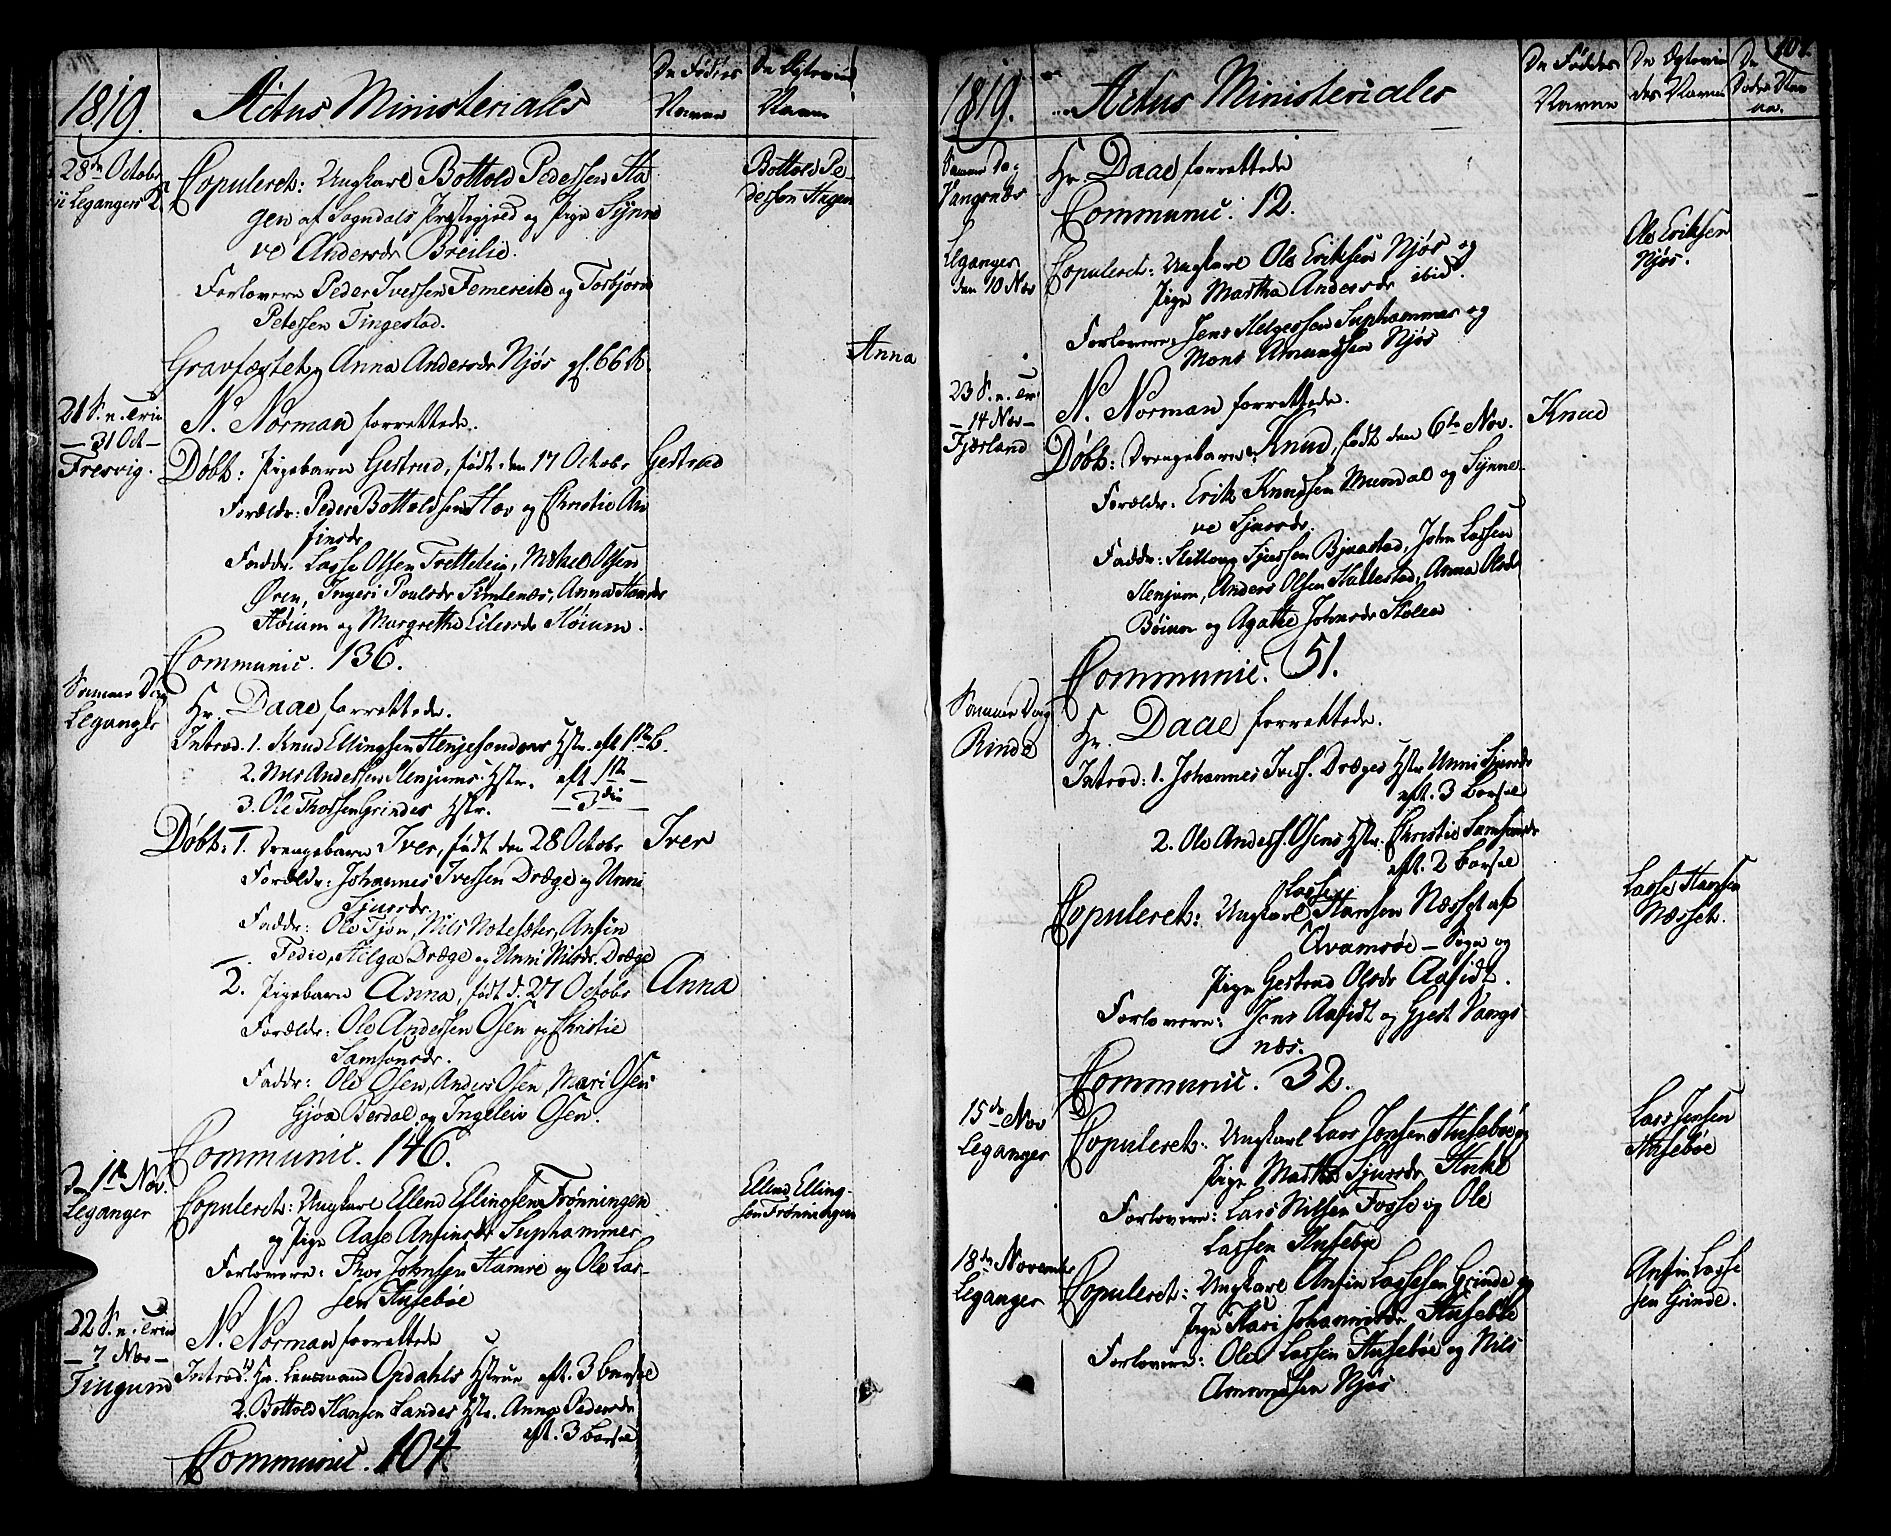 1819.
Actus Ministeriales
De Fødtes
Navne
De Egtevied
Navne
28de Octobr
i Leganger
Copuleret: Ungkarl Bottold Pedersen Ha
gen af Sogndals Præstegjeld og Pige Synne
ve Andersdr Breilie.
Forlovere Peder Iversen Femereite og Torbjørn
Petersen Tingestad.
Bottold Pe-
dersen Hagen
Gravfæstet, Anna Andersdr Njøs gl. 66
Anna
21 S. n. Trin
- 31 Oct -
Fresvig.
N. Norman forrettede.
Døbt: Pigebarn Gertrud, født den 17 Octobr
Gertrud
Forældr: Peder Bottoldsen Hov og Christie An
finsdr
Faddr. Lasse Olsen Trettetein, Mikel Olsen
Øren, Ingeri Poulsdr Simlenæs, Anna Hansdr
Høium og Margrethe Eilersdr Høium.
Communic. 136.
Samme Dag
Leganger
Hr. Daae forrettede.
Introd. 1. Knud Ellingsen Henjesanden Hstr. eft 1ste B.
2. Nils Andersen Henjums Hstr. eft 1ste -
3. Ole Thorsen Grindes Hstr. - 3die -
Døbt: 1. Drengebarn Iver, født den 28 Octobr
Iver
Forældr: Johannes Iversen Dræge og Unni
Sjursdr.
Faddr: Ole Tjøn, Nils Notesæter, Anfin
Fedie, Helga Dræge og Unni Nilsdr. Dræge
2. Pigebarn Anna, født d. 27 Octobr
Anna
Forældr: Ole Andersen Osen og Christie
Samsonsdr.
Faddr: Ole Osen, Anders Osen, Mari Osen
Gjøa Berdal og Ingeleiv Osen.
Communic. 146.
Den 1ste Nov.
Leganger
Copuleret: Ungkarl Ellend Ellingsen Frønningen
og Pige Aase Anfinsdr Suphammer
Forlovere: Thor Johnsen Hamre og Ole Las-
sen Husebøe
Ellend Elling-
sen Frønningen
22 S. n. Trin
- 7 Nov -
Tingund
N. Norman forrettede
Introd. 1. Hr. Lensmand Opdahls Hstrue eft. 3 barsel
2. Bottold Hansen Landes Hstr. Anna Pedersdr
eft. 3 barsel
Communic. 104
1819.
Actus Ministeriales
De Føddes
Navne
De Egtevie
des Navne
De
Dødes Nav
ne.
107.
Samme Dag
Vangsnæs
Hr Daae forrettede
Communic. 12.
Leganger
den 10 Nov
Copuleret: Ungkarl Ole Eriksen Njøs og
Pige Martha Andersdr ibid.
Forlovere, Jens Helgesen Suphammer og
Mons Amundsen Njøs
Ole Eriksen
Njøs.
23 S. n. Tri.
- 14 Nov -
Fjærland
N. Norman forrettede.
Døbt: Drengebarn Knud, født den 6te Nov.
Knud
Forældr. Erik Knudsen Mundal og Synne-
ve Sjursdr.
Faddr: Sjursen Bjaastad, John Lassen
Henjum, Anders Olsen Hallestad, Anna Olsdr
Bøium og Agathe Johnsdr Skolen
Communic. 51.
Samme Dag
Rinde
Hr. Daae forrettede.
Introd: 1. Johannes Ivers. Dræges Hstr Unni Sjursdr
eft. 3 barsel
2. Ole Anders. Osens Hstr. Christie Samsonsdr
eft. 2 barsel
Copuleret: Ungkarl Lasse Hansen Næsset af
Qvamsøe - Sogn og
Pige Gertrud Olsdr Aafidt.
Forlovere: Jens Aafidt og Gjest Vangs
næs.
Lasse Hansen
Næsset.
Communic. 32.
15de Nov
Leganger
Copuleret: Ungkarl Lars Jensen Husebøe og
Pige Martha Sjursdr
Forlovere: Lars Nilsen Fosse og Ole
Lassen Husebøe
Lars Jensen
Husebøe
18de November
Leganger
Copuleret: Ungkarl Anfin Lassesen Grinde og
Pige Kari Johannisdr Husebøe
Forlovere: Ole Lassen Husebøe og Nils
Amundsen Njøs
Anfin Lasse
sen Grinde.